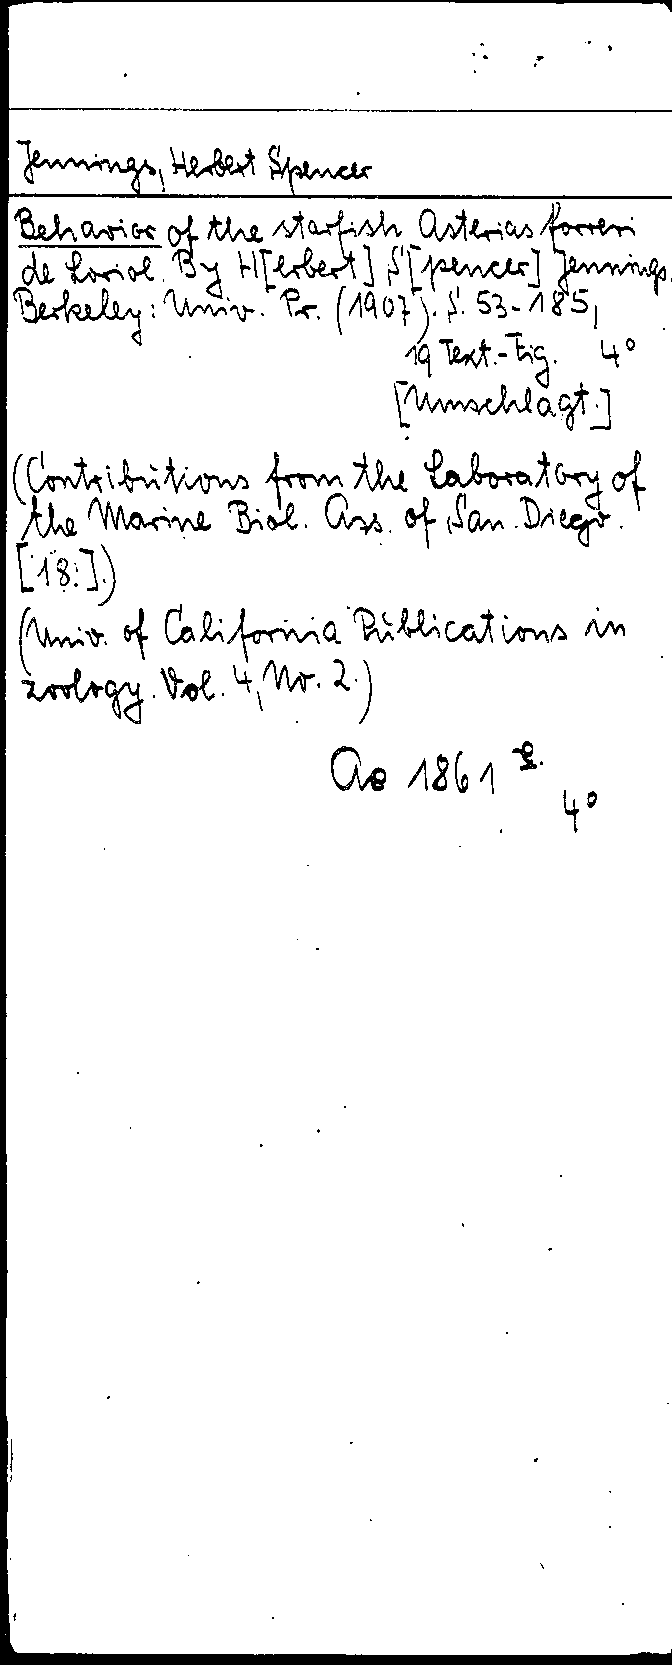 Jennings, Herbert Spencer
Behavior of the starfish Asterias forreri
de Loriol. By H[erbert] S[pencer] Jennings.
Berkeley: Univ. Pr. (1907). S. 53-185,
19 Text.-Fig. 4°
[Umschlagt.]
(Contributions from the Laboratory of
the Marine Biol. Ass. of San Diego.
[18.].)
(Univ. of California Publications in
zoology. Vol. 4, No. 2.)
1861
4°